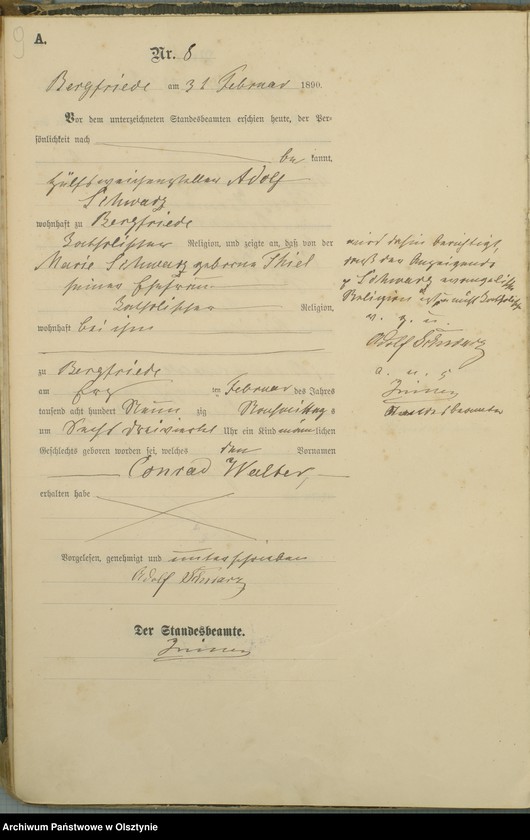 9
A.
Nr. 8
Bergfriede am Februar 1890.
Vor dem unterzeichneten Standesbeamten erschien heute, der Per-
sönlichkeit nach
bekannt,
Hülfsweichensteller Adolf
Schwarz
wohnhaft zu Bergfriede
katholischer Religion, und zeigte an, daß von der
Marie Schwarz geborene Thiel
seiner Ehefrau
katholischer Religion,
wohnhaft bei ihm
zu Bergfriede
am ten Februar des Jahres
tausend acht hundert Neunzig Nachmittags
um Sechs dreiviertel Uhr ein Kind männlichen
Geschlechts geboren worden sei, welches den Vornamen
Conrad Walter,
erhalten habe
Vorgelesen, genehmigt und unterschrieben
Adolf Schwarz
Der Standesbeamte.
wird dahin berichtigt,
daß der Anzeigende
p Schwarz evangelischer
Religion ist nicht katholischer
v. g. u.
Adolf Schwarz
Standesbeamter
Archiwum Państwowe w Olsztynie